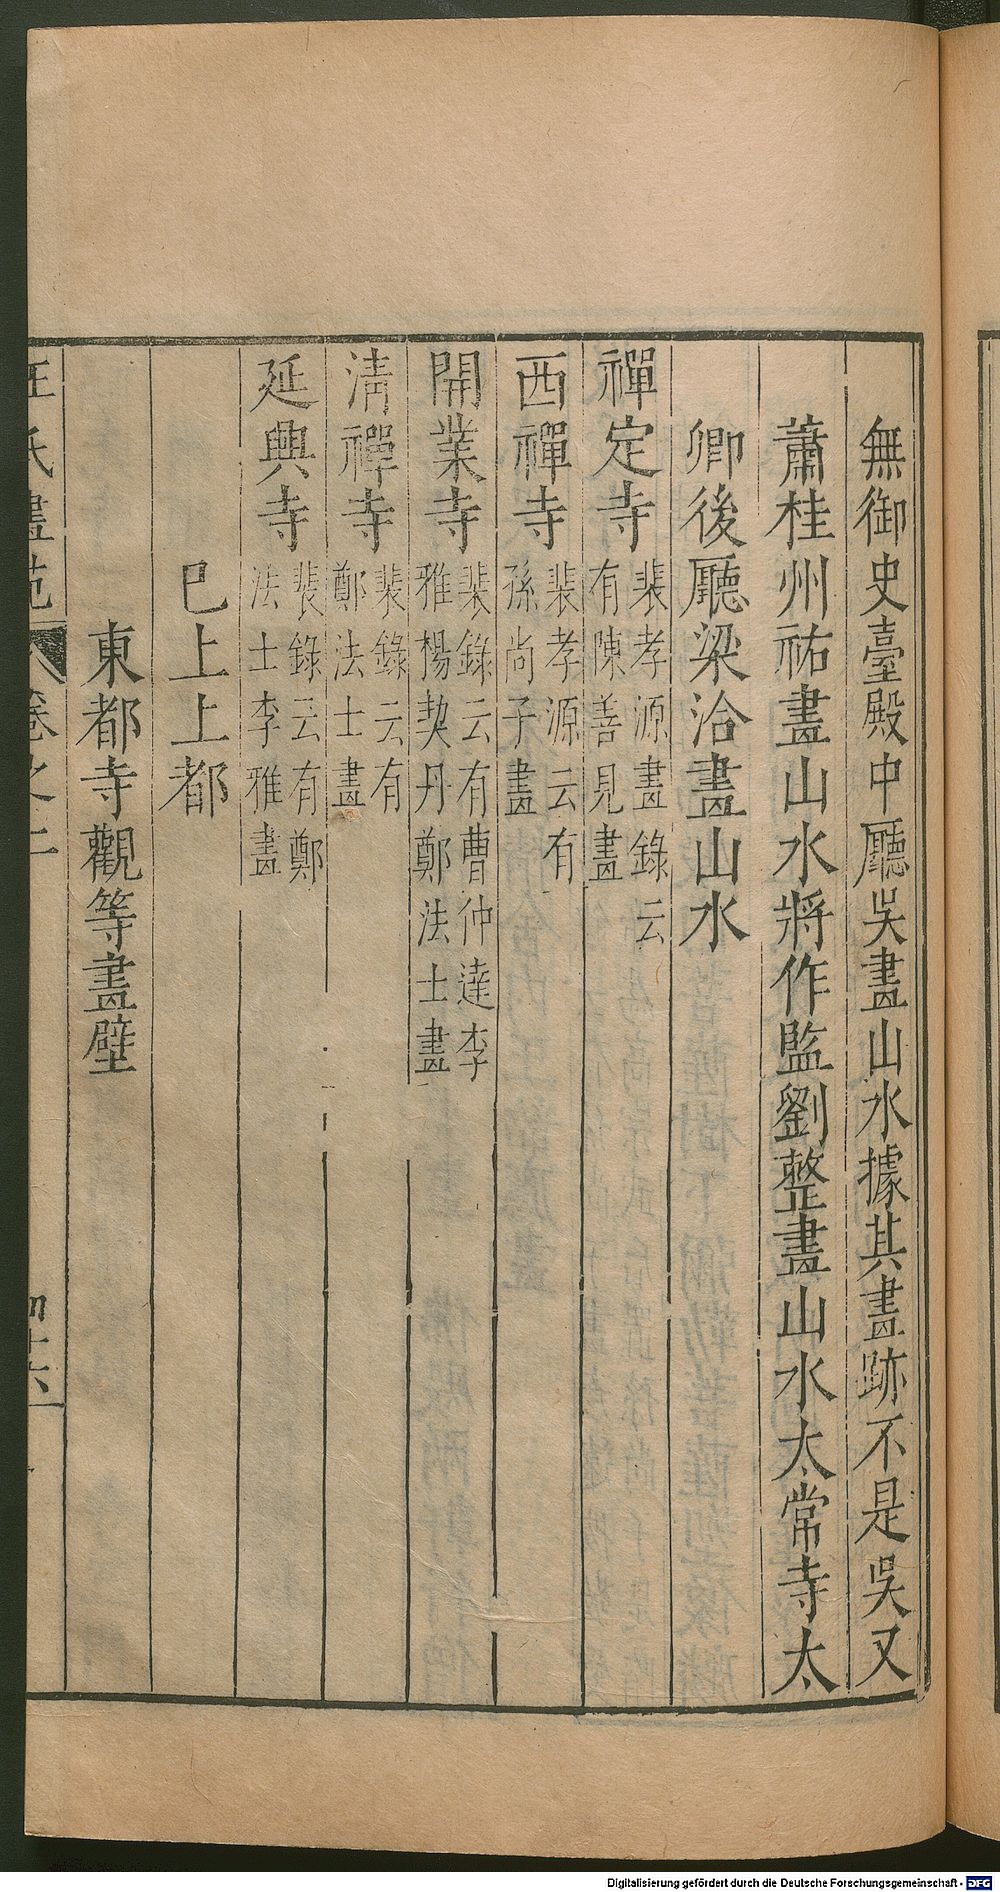 無御史臺殿中廳吳畫山水據其畫跡不是吳又
蕭桂州祐畫山水將作監劉整畫山水太常寺太
卿後廳梁洽畫山水
禪定寺裴孝源畫錄云
有陳善見畫
西禪寺裴孝源云有
孫尚子畫
開業寺裴錄云有曹仲達李
雅楊契丹鄭法士畫
淸禪寺裴錄云有
鄭法士畫
延興寺裴錄云有鄭
法士李雅畫
巳上上都
東都寺觀等畫壁
王氏畫苑 卷之二 四十六
Digitalisierung gefördert durch die Deutsche Forschungsgemeinschaft - DFG